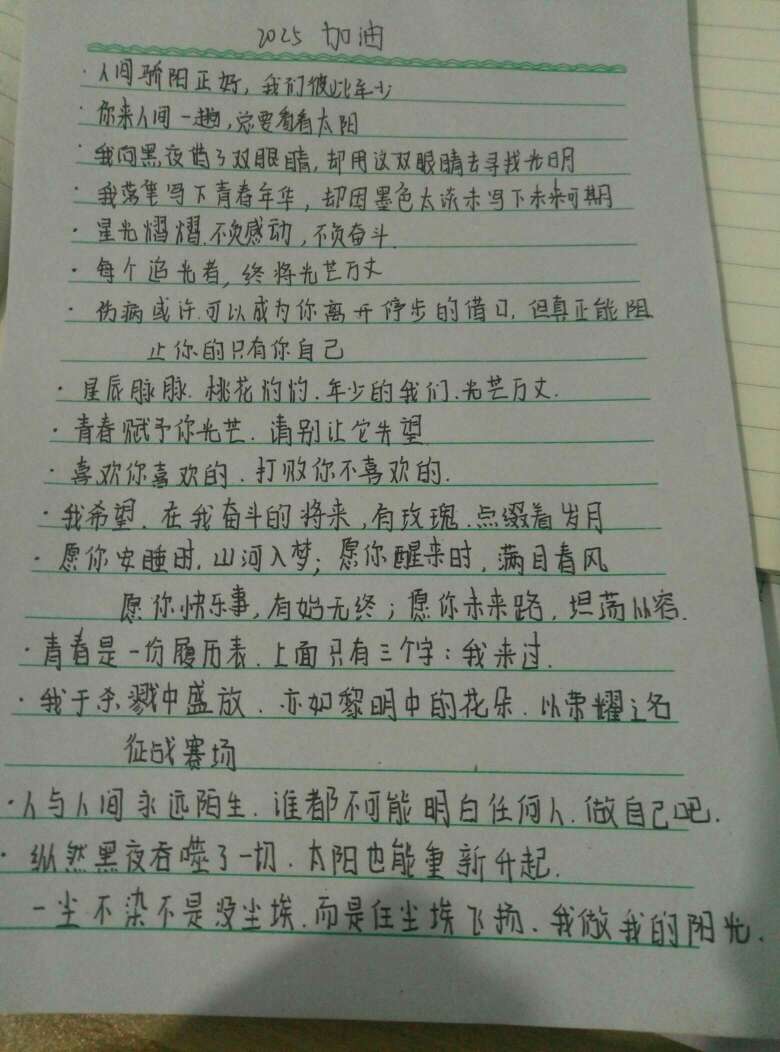 2025 加油
· 人间骄阳正好, 我们彼此年少
· 你来人间一趟, 总要看看太阳
· 我向黑夜借了双眼睛, 却用这双眼睛去寻找光明
· 我落笔写下青春年华, 却因墨色太淡未写下未来可期
· 星光熠熠.不负感动, 不负奋斗.
· 每个追光者, 终将光芒万丈
· 伤病或许.可以成为你离开停步的借口, 但真正能阻
止你的只有你自己
· 星辰脉脉. 桃花灼灼. 年少的我们.光芒万丈.
· 青春赋予你光芒. 请别让它失望
· 喜欢你喜欢的. 打败你不喜欢的.
· 我希望. 在我奋斗的将来, 有玫瑰.点缀着岁月
· 愿你安睡时, 山河入梦; 愿你醒来时, 满目春风
愿你快乐事, 有始无终; 愿你未来路, 坦荡从容.
· 青春是一份履历表. 上面只有三个字: 我来过.
· 我于杀戮中盛放. 亦如黎明中的花朵. 以荣耀之名
征战赛场
· 人与人间永远陌生. 谁都不可能明白任何人. 做自己吧.
· 纵然黑夜吞噬了一切. 太阳也能重新升起.
一尘不染不是没尘埃. 而是任尘埃飞扬. 我做我的阳光.